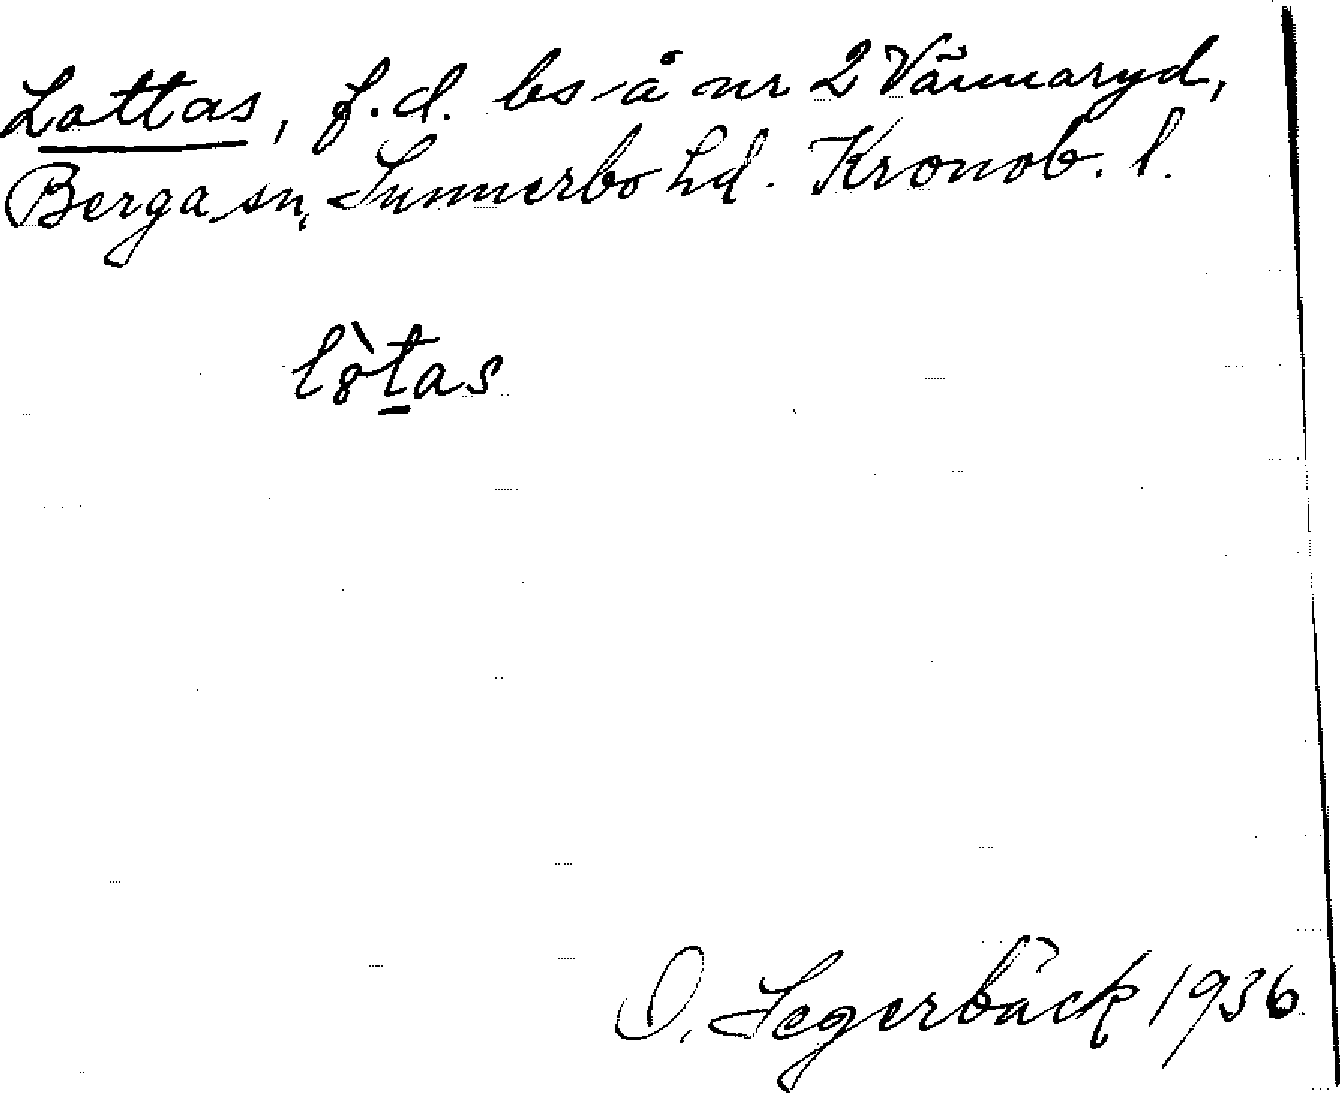 Lottas, f.d. bs å nr 2 Vännaryd,
Berga sn, Sunnerbo hd. Kronob. l.
lòt̲as
O. Segerbäck 1936